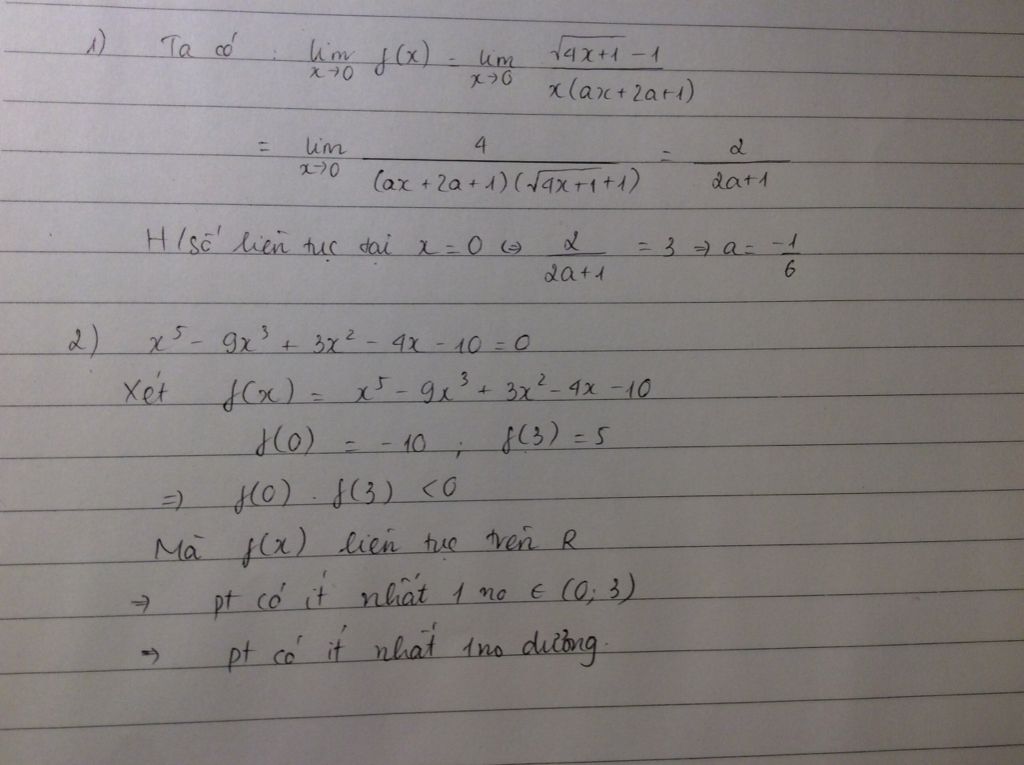 1) Ta có : lim x→0 f(x) = lim x→0 (√(4x+1) - 1) / (x(ax+2a+1))
= lim x→0 4 / ((ax+2a+1)(√(4x+1)+1)) = 2 / (2a+1)
H/số liên tục tại x=0 ⇔ 2 / (2a+1) = 3 ⇒ a = -1/6
2) x⁵ - 9x³ + 3x² - 4x - 10 = 0
Xét f(x) = x⁵ - 9x³ + 3x² - 4x - 10
f(0) = -10 ; f(3) = 5
⇒ f(0) . f(3) < 0
Mà f(x) liên tục trên R
⇒ pt có ít nhất 1 no ∈ (0; 3)
⇒ pt có ít nhất 1 no dương.